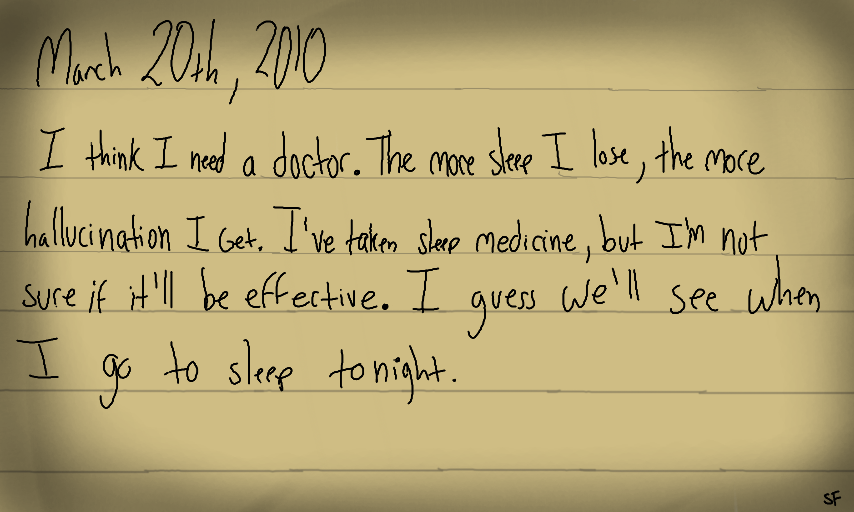 March 20th, 2010
I think I need a doctor. The more sleep I lose, the more
hallucination I Get. I've taken sleep medicine, but I'm not
sure if it'll be effective. I guess we'll see when
I go to sleep tonight.
SF